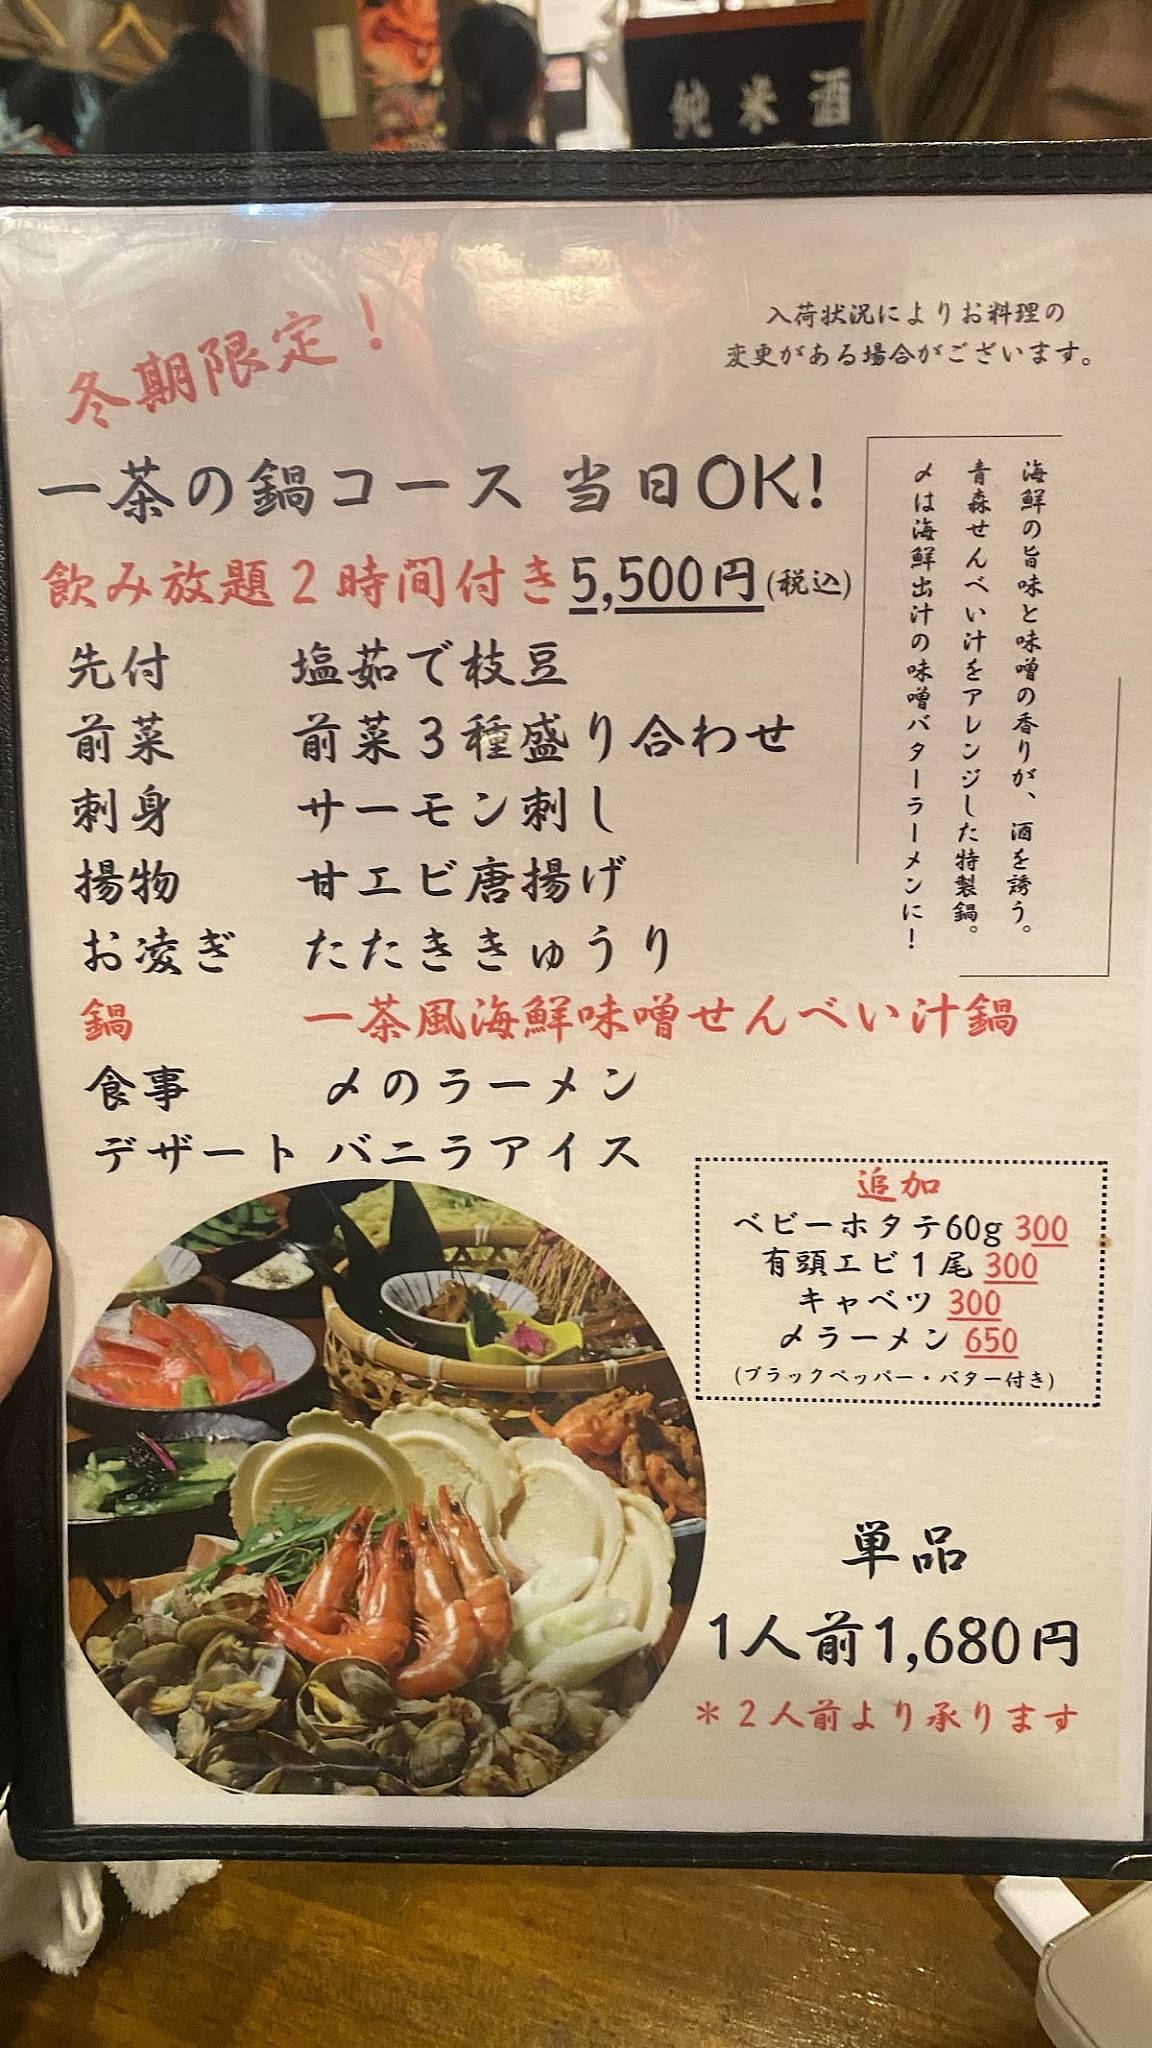 純米酒
冬期限定！
入荷状況によりお料理の
変更がある場合がございます。
一茶の鍋コース 当日OK!
飲み放題２時間付き5,500円(税込)
海鮮の旨味と味噌の香りが、酒を誘う。
青森せんべい汁をアレンジした特製鍋。
〆は海鮮出汁の味噌バターラーメンに！
先付 塩茹で枝豆
前菜 前菜３種盛り合わせ
刺身 サーモン刺し
揚物 甘エビ唐揚げ
お凌ぎ たたききゅうり
鍋 一茶風海鮮味噌せんべい汁鍋
食事 〆のラーメン
デザート バニラアイス
追加
ベビーホタテ60g 300
有頭エビ１尾 300
キャベツ 300
〆ラーメン 650
(ブラックペッパー・バター付き)
単品
1人前1,680円
＊２人前より承ります